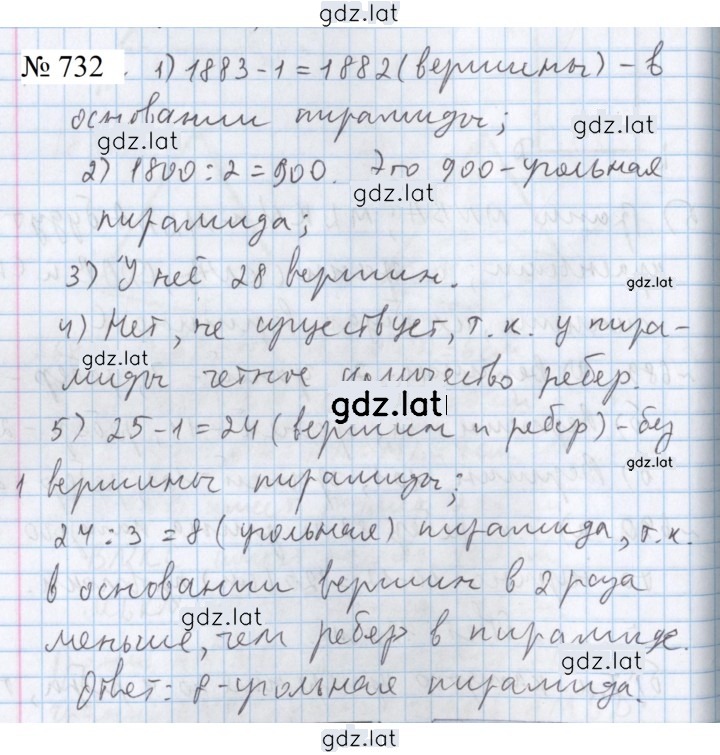 gdz.lat
№ 732 . 1) 1883 - 1 = 1882 (вершины) - в
основании пирамиды;
gdz.lat
gdz.lat
2) 1800 : 2 = 900. Это 900 - угольная
gdz.lat
пирамида;
gdz.lat
3) У неё 28 вершин.
gdz.lat
4) Нет, не существует, т. к. у пира-
gdz.lat
миды четное количество ребер.
gdz.lat
5) 25 - 1 = 24 (вершин и ребер) - без
gdz.lat
1 вершины пирамиды;
24 : 3 = 8 (угольная) пирамида, т. к.
в основании вершин в 2 раза
gdz.lat
меньше, чем ребер в пирамиде.
gdz.lat
Ответ: 8 - угольная пирамида.
gdz.lat
gdz.lat